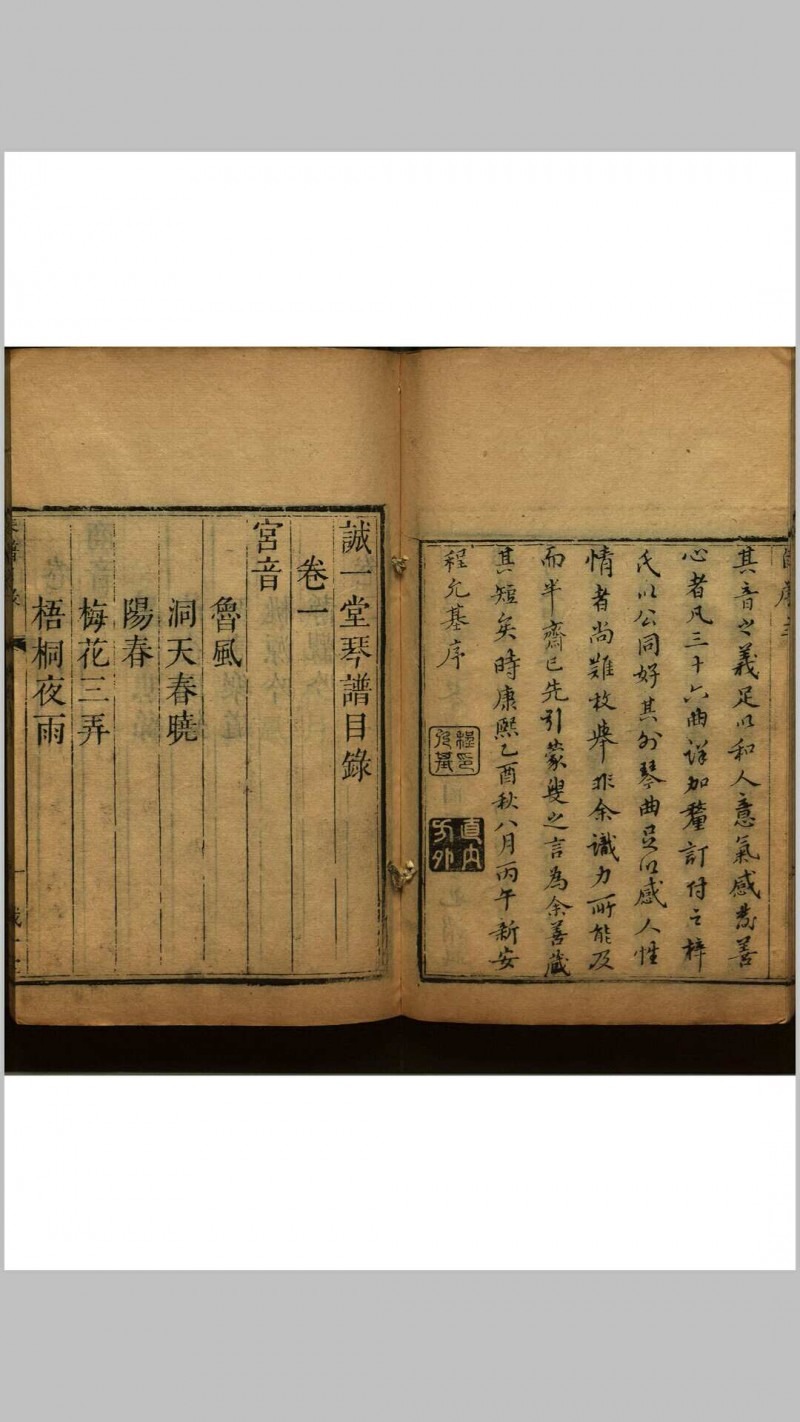 其音之義足以和人意氣感發善
心者凡三十六曲詳加釐訂付之梓
氏以公同好其外琴曲足以感人性
情者尚難枚舉非余識力所能及
而半齋已先引蒙叟之言為余善藏
其短矣時康熙乙酉秋八月丙午新安
程允基序
直內
方外
誠一堂琴譜目錄
卷一
宮音
魯風
洞天春曉
陽春
梅花三弄
梧桐夜雨